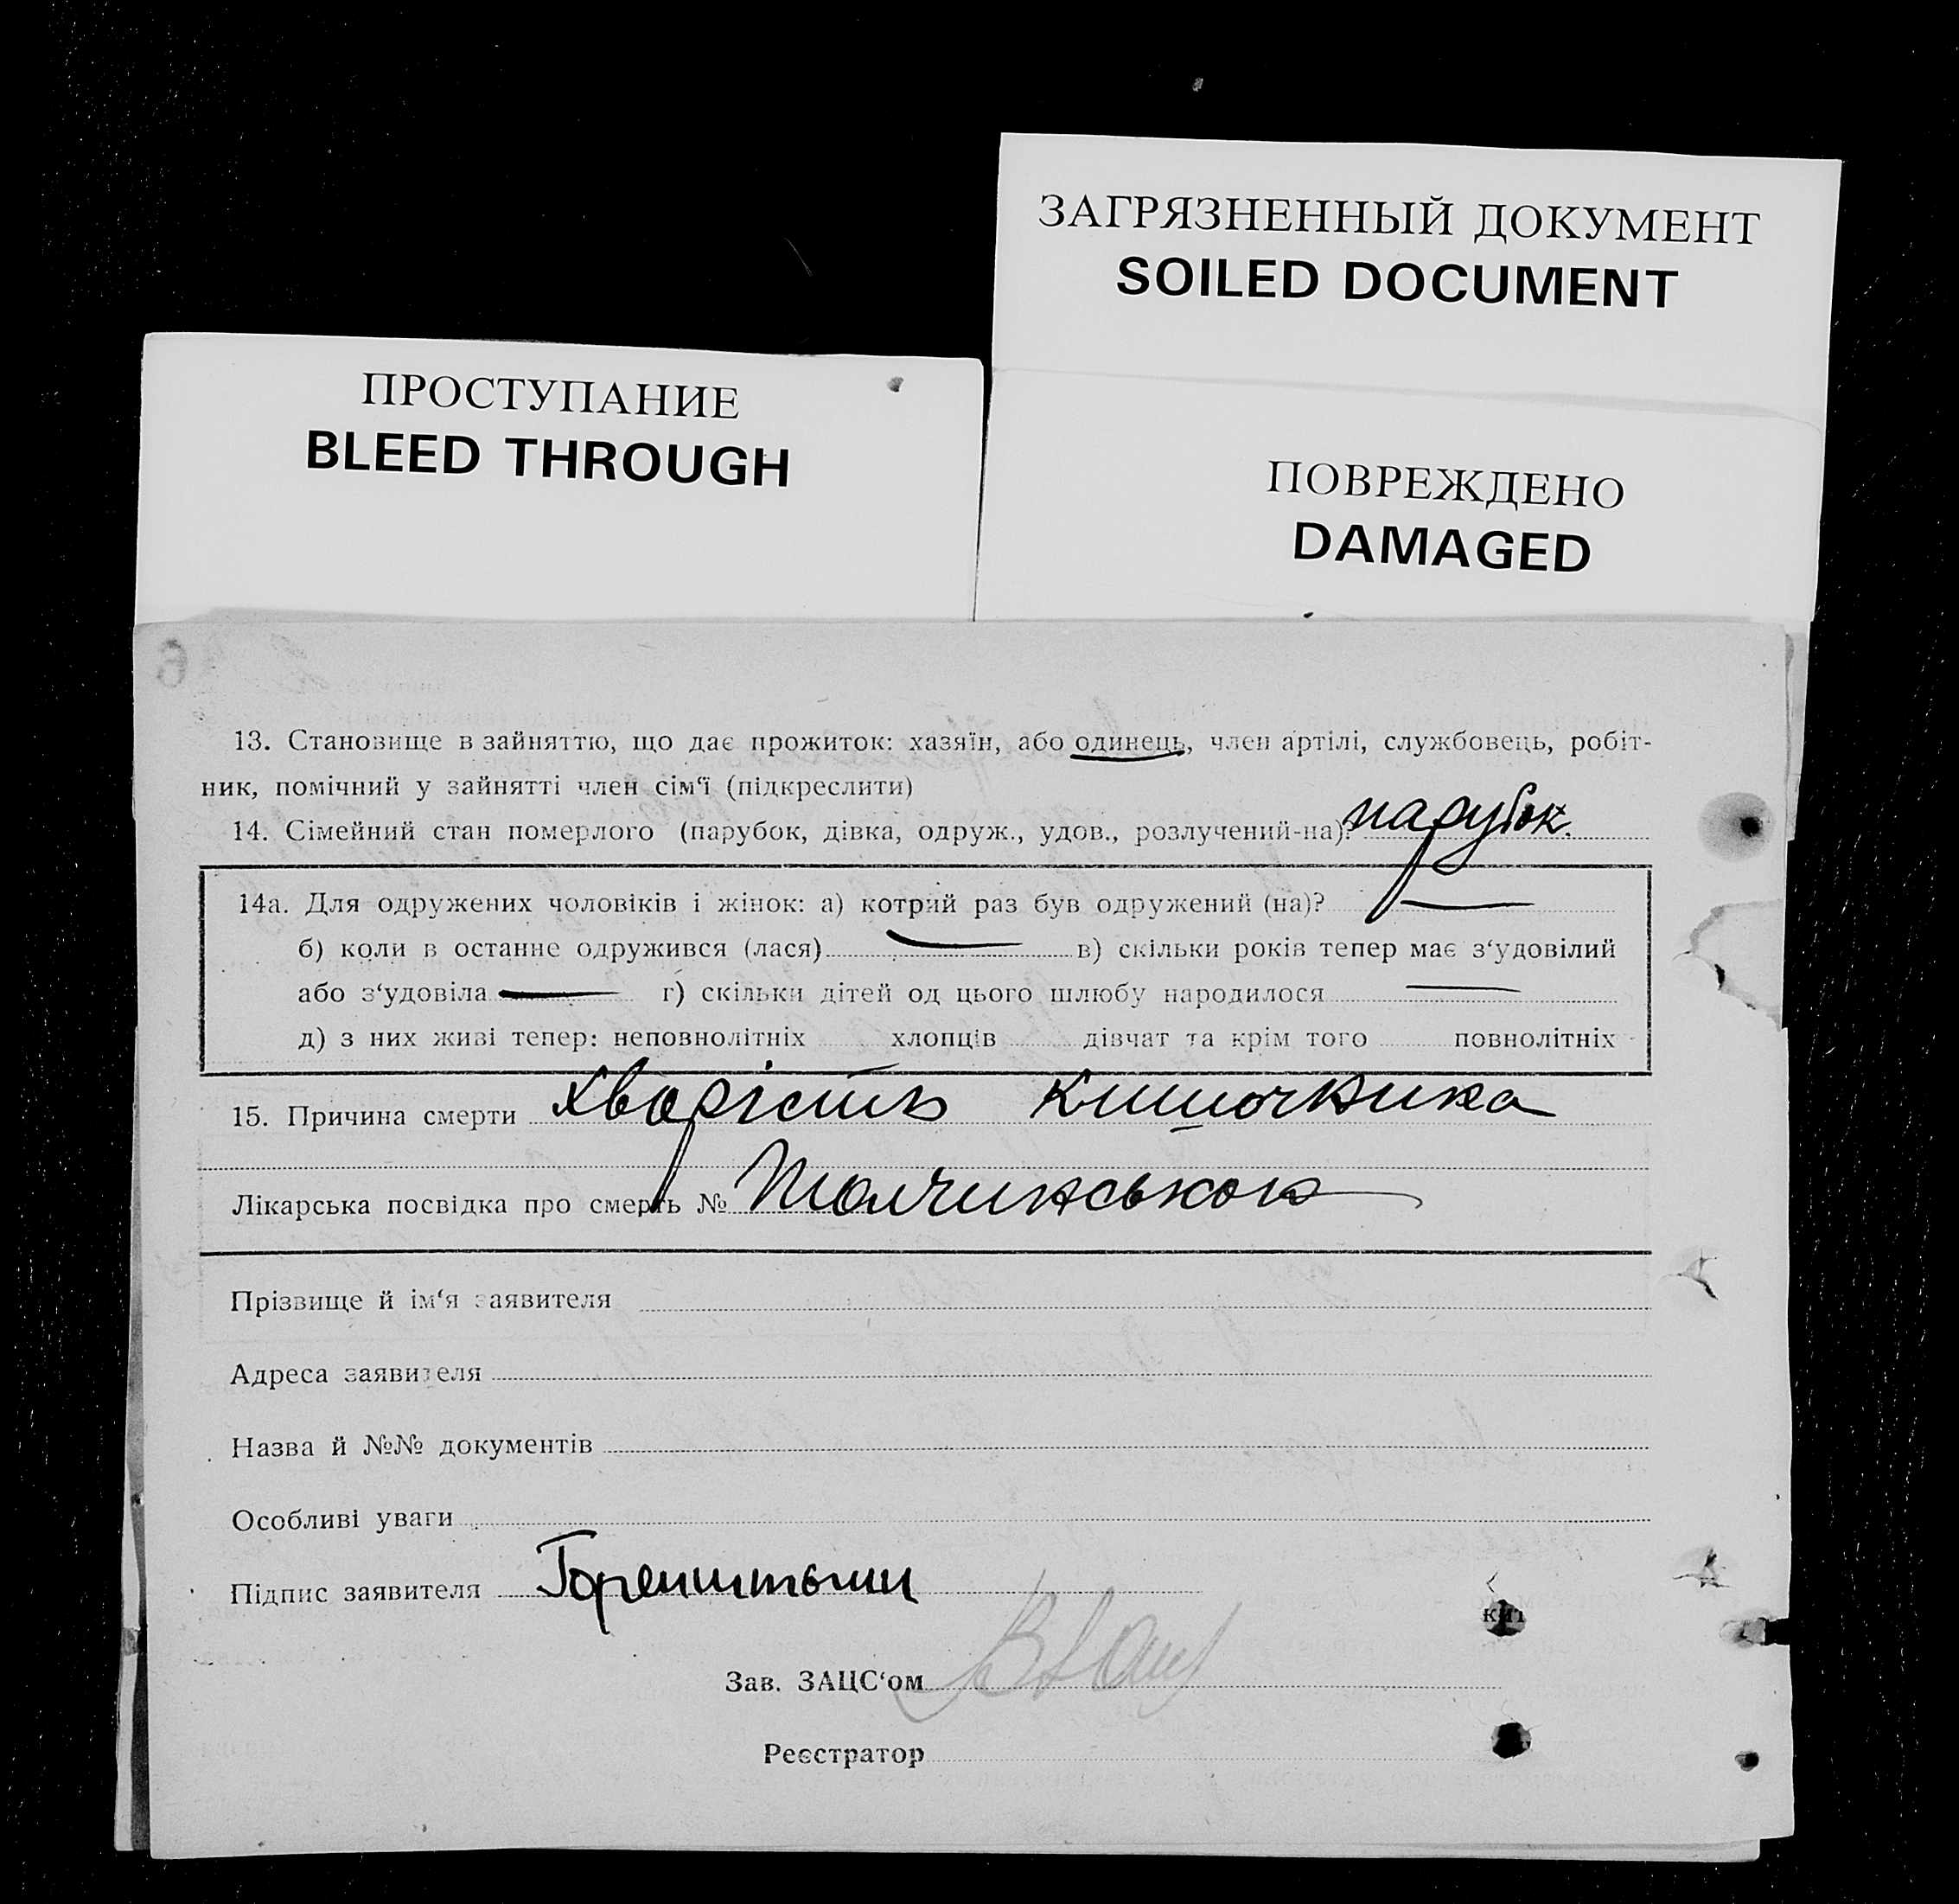 ЗАГРЯЗНЕННЫЙ ДОКУМЕНТ
SOILED DOCUMENT
ПРОСТУПАНИЕ
BLEED THROUGH
ПОВРЕЖДЕНО
DAMAGED
13. Становище в зайняттю, що дає прожиток: хазяїн, або одинець, член артілі, службовець, робіт-
ник, помічний у зайнятті член сім‘ї (підкреслити)
14. Сімейний стан померлого (парубок, дівка, одруж., удов., розлучений-на)? парубок.
14а. Для одружених чоловіків і жінок: а) котрий раз був одружений (на)? —
б) коли в останнє одружився (лася) — в) скільки років тепер має з‘удовілий
або з‘удовіла — г) скільки дітей од цього шлюбу народилося —
д) з них живі тепер: неповнолітніх хлопців дівчат та крім того повнолітніх
15. Причина смерти хворість кишочника
Лікарська посвідка про смерть №
Прізвище й ім‘я заявителя
Адреса заявителя
Назва й №№ документів
Особливі уваги
Підпис заявителя
Зав. ЗАЦС‘ом
Реєстратор